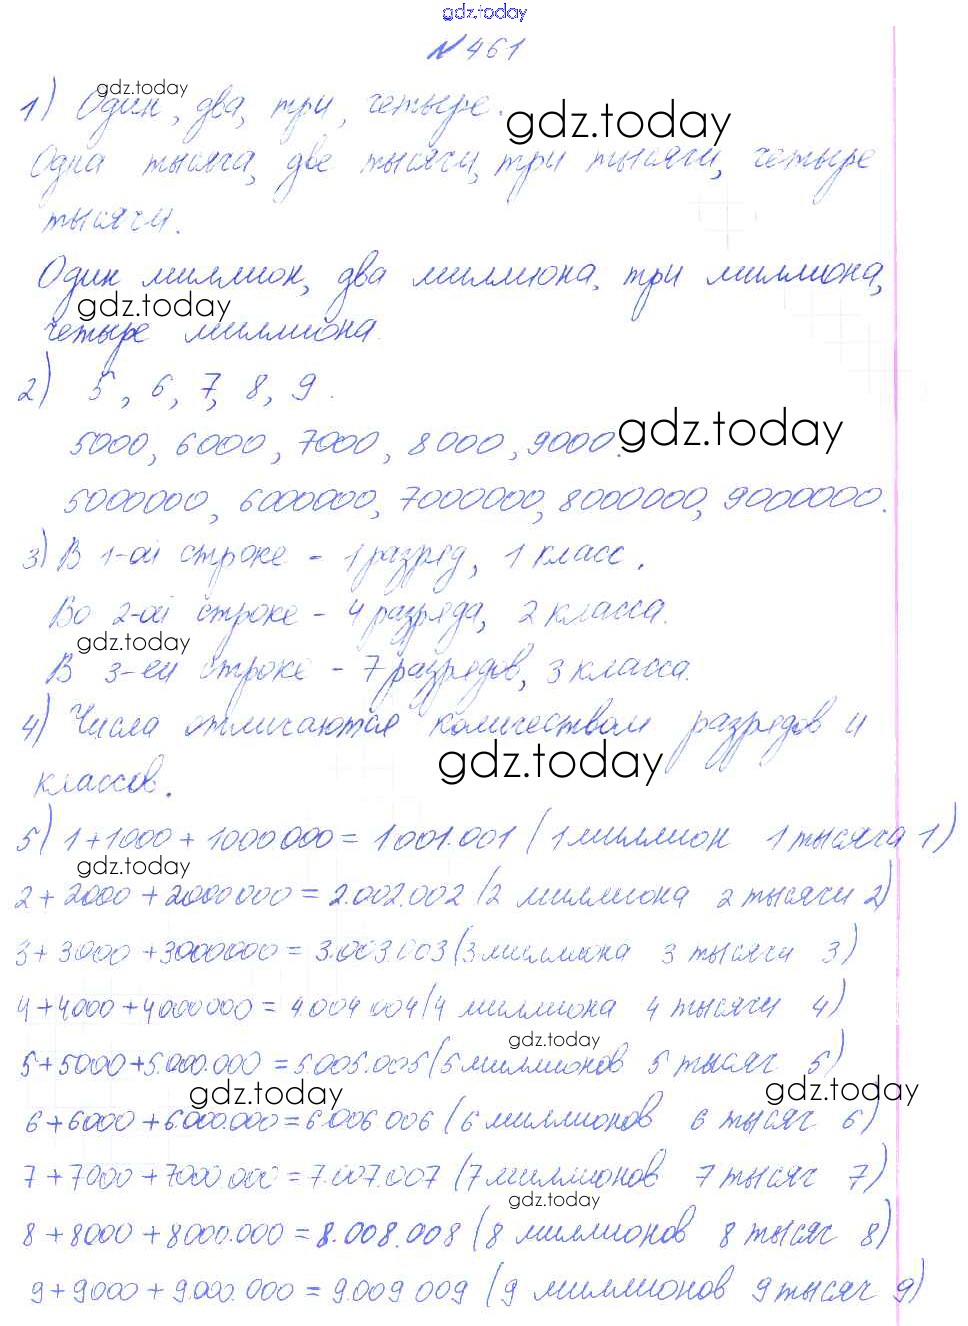 gdz.today
№ 461
gdz.today
1) Один, два, три, четыре.
gdz.today
Одна тысяча, две тысячи, три тысячи, четыре
тысячи.
Один миллион, два миллиона, три миллиона,
gdz.today
четыре миллиона.
2) 5, 6, 7, 8, 9.
5000, 6000, 7000, 8000, 9000.
gdz.today
5000000, 6000000, 7000000, 8000000, 9000000.
3) В 1-ой строке - 1 разряд, 1 класс.
Во 2-ой строке - 4 разряда, 2 класса.
gdz.today
В 3-ей строке - 7 разрядов, 3 класса.
4) Числа отличаются количеством разрядов и
gdz.today
классов.
5) 1+1000+1000000=1001.001 (1 миллион 1 тысяча 1)
gdz.today
2+2000+2000000=2.002.002 (2 миллиона 2 тысячи 2)
3+3000+3000000=3.003.003 (3 миллиона 3 тысячи 3)
4+4000+4000000=4.004.004 (4 миллиона 4 тысячи 4)
gdz.today
5+5000+5.000.000=5.005.005 (5 миллионов 5 тысяч 5)
gdz.today gdz.today
6+6000+6.000.000=6.006.006 (6 миллионов 6 тысяч 6)
7+7000+7000.000=7.007.007 (7 миллионов 7 тысяч 7)
gdz.today
8+8000+8000.000=8.008.008 (8 миллионов 8 тысяч 8)
9+9000+9.000.000=9.009.009 (9 миллионов 9 тысяч 9)